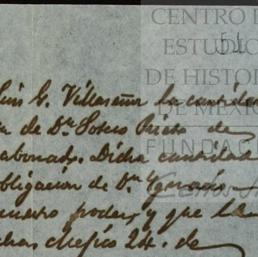 CENTRO
ESTUDIO
DE HISTOR
DE MÉXIC
FUNDAC
Carlos
54
Luis G. Villaseñor la cantidad
de Dn. Sotero Prieto de
abonado. Dicha cantidad
obligacion de Dn. Ygnacio
nuestro poder, y que la
Mejico 24. de